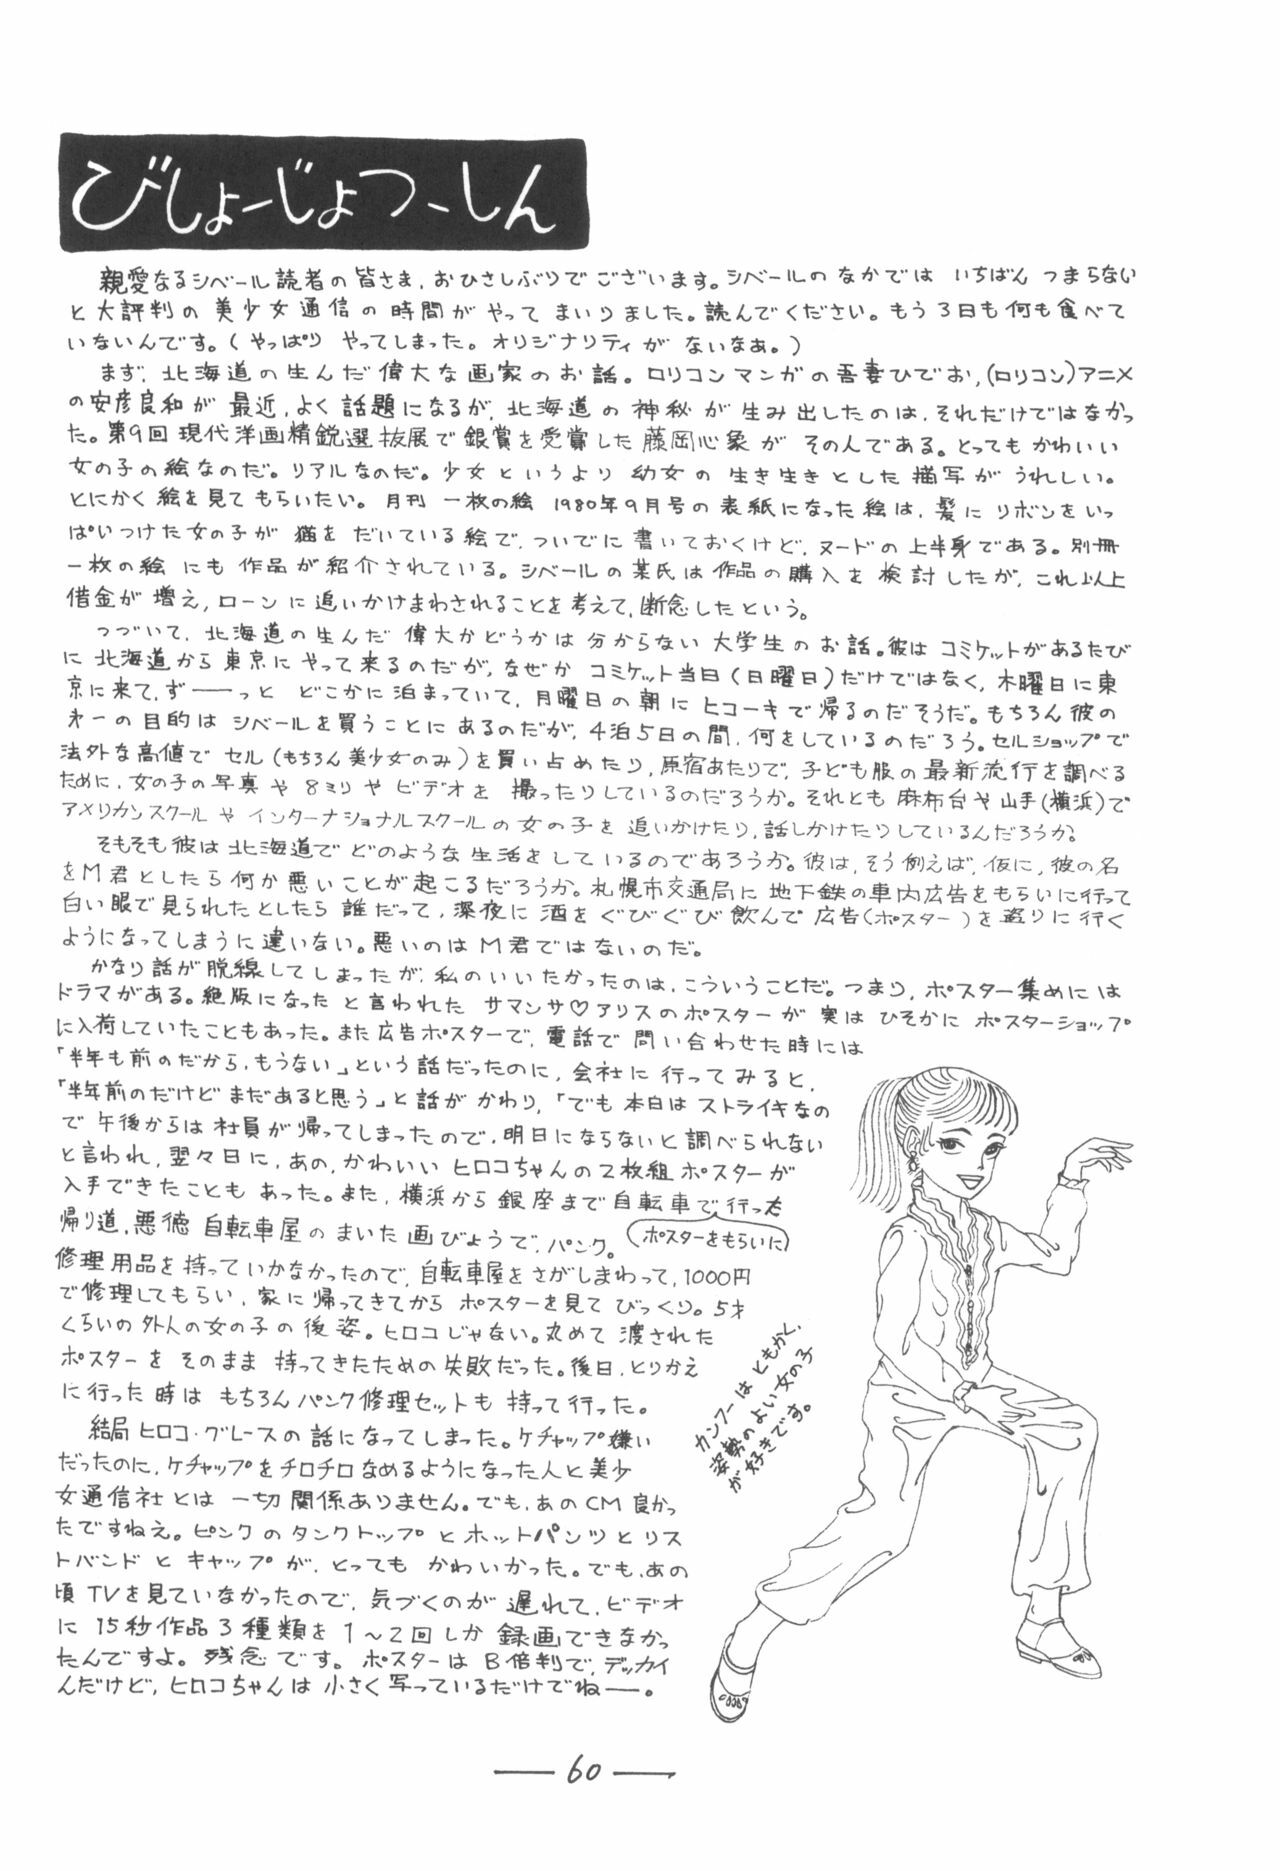 びしょーじょつーしん
親愛なるシベール読者の皆さま，おひさしぶりでございます。シベールのなかでは いちばん つまらない
と大評判の 美少女通信の時間が やって まいりました。読んでください。もう3日も何も食べて
いないんです。(やっぱり やってしまった。オリジナリティが ないなぁ。)
まず，北海道の生んだ偉大な画家のお話。ロリコンマンガの吾妻ひでお，(ロリコン)アニメ
の安彦良和が 最近，よく話題になるが，北海道の神秘が生み出したのは，それだけではなかっ
た。第9回 現代洋画精鋭選抜展で銀賞を受賞した 藤岡心象が その人である。とっても かわいい
女の子の絵なのだ。リアルなのだ。少女というより 幼女の 生き生きとした 描写が うれしい。
とにかく絵を見てもらいたい。月刊 一枚の絵 1980年9月号の表紙になった絵は，髪に リボンをいっ
ぱいつけた女の子が 猫を だいている絵で，ついでに 書いておくけど，ヌードの上半身である。別冊
一枚の絵 にも 作品が紹介されている。シベールの某氏は作品の購入を検討したが，これ以上
借金が増え，ローンに追いかけまわされることを考えて，断念したという。
つづいて，北海道の生んだ 偉大かどうかは 分からない 大学生のお話。彼は コミケットがあるたび
に 北海道から東京に やって来るのだが，なぜか コミケット当日(日曜日)だけではなく，木曜日に東
京に来て，ず――っと どこかに泊まっていて，月曜日の朝に ヒコーキで帰るのだそうだ。もちろん彼の
第一の目的は シベールを買うことにあるのだが，4泊5日の間，何をしているのだろう。セルショップで
法外な高値で セル(もちろん美少女のみ)を買い占めたり，原宿あたりで，子ども服の最新流行を調べる
ために，女の子の写真や 8ミリや ビデオを 撮ったりしているのだろうか。それとも 麻布台や山手(横浜)で
アメリカンスクールや インターナショナルスクールの女の子を 追いかけたり，話しかけたりしているんだろうか。
そもそも彼は北海道で どのような 生活をしているのであろうか。彼は，そう例えば，仮に，彼の名
をM君としたら何か悪いことが起こるだろうか。札幌市交通局に 地下鉄の車内広告をもらいに行って
白い眼で見られたとしたら 誰だって，深夜に 酒を ぐびぐび飲んで 広告(ポスター)を 盗りに行く
ようになってしまうに違いない。悪いのは M君ではないのだ。
かなり話が脱線してしまったが，私のいいたかったのは，こういうことだ。つまり，ポスター集めには
ドラマがある。絶版になった と言われた サマンサ♡アリスのポスターが 実は ひそかに ポスターショップ
に入荷していたこともあった。また広告ポスターで，電話で 問い合わせた時には
「半年も前のだから，もうない」という話だったのに，会社に 行ってみると，
「半年前のだけど まだあると思う」と話が かわり，「でも本日は ストライキなの
で 午後からは社員が帰ってしまったので，明日にならないと調べられない
と言われ，翌々日に，あの，かわいい ヒロコちゃんの2枚組ポスターが
入手できたことも あった。また，横浜から 銀座まで自転車で行った
(ポスターをもらいに)
帰り道，悪徳 自転車屋の まいた 画びょうで，パンク。
修理用品を持っていかなかったので，自転車屋をさがしまわって，1000円
で修理してもらい，家に帰ってきてから ポスターを見て びっくり。5才
くらいの外人の女の子の後姿。ヒロコじゃない。丸めて 渡された
ポスターを そのまま 持ってきたための失敗だった。後日，とりかえ
に行った時は もちろんパンク修理セットも 持って行った。
結局 ヒロコ・グレースの話になってしまった。ケチャップ嫌い
だったのに，ケチャップをチロチロなめるようになった人と美少
女通信社とは 一切関係ありません。でも，あのCM良かっ
たですねえ。ピンクのタンクトップとホットパンツとリス
トバンドと キャップが，とっても かわいかった。でも，あの
頃TVを見ていなかったので，気づくのが 遅れて，ビデオ
に 15秒作品3種類を 1～2回しか 録画できなかっ
たんですよ。残念です。ポスターは B倍判で，デッカイ
んだけど，ヒロコちゃんは小さく写っているだけでね――。
カンフーはともかく，
姿勢のよい女の子
が好きです。
― 60 ―